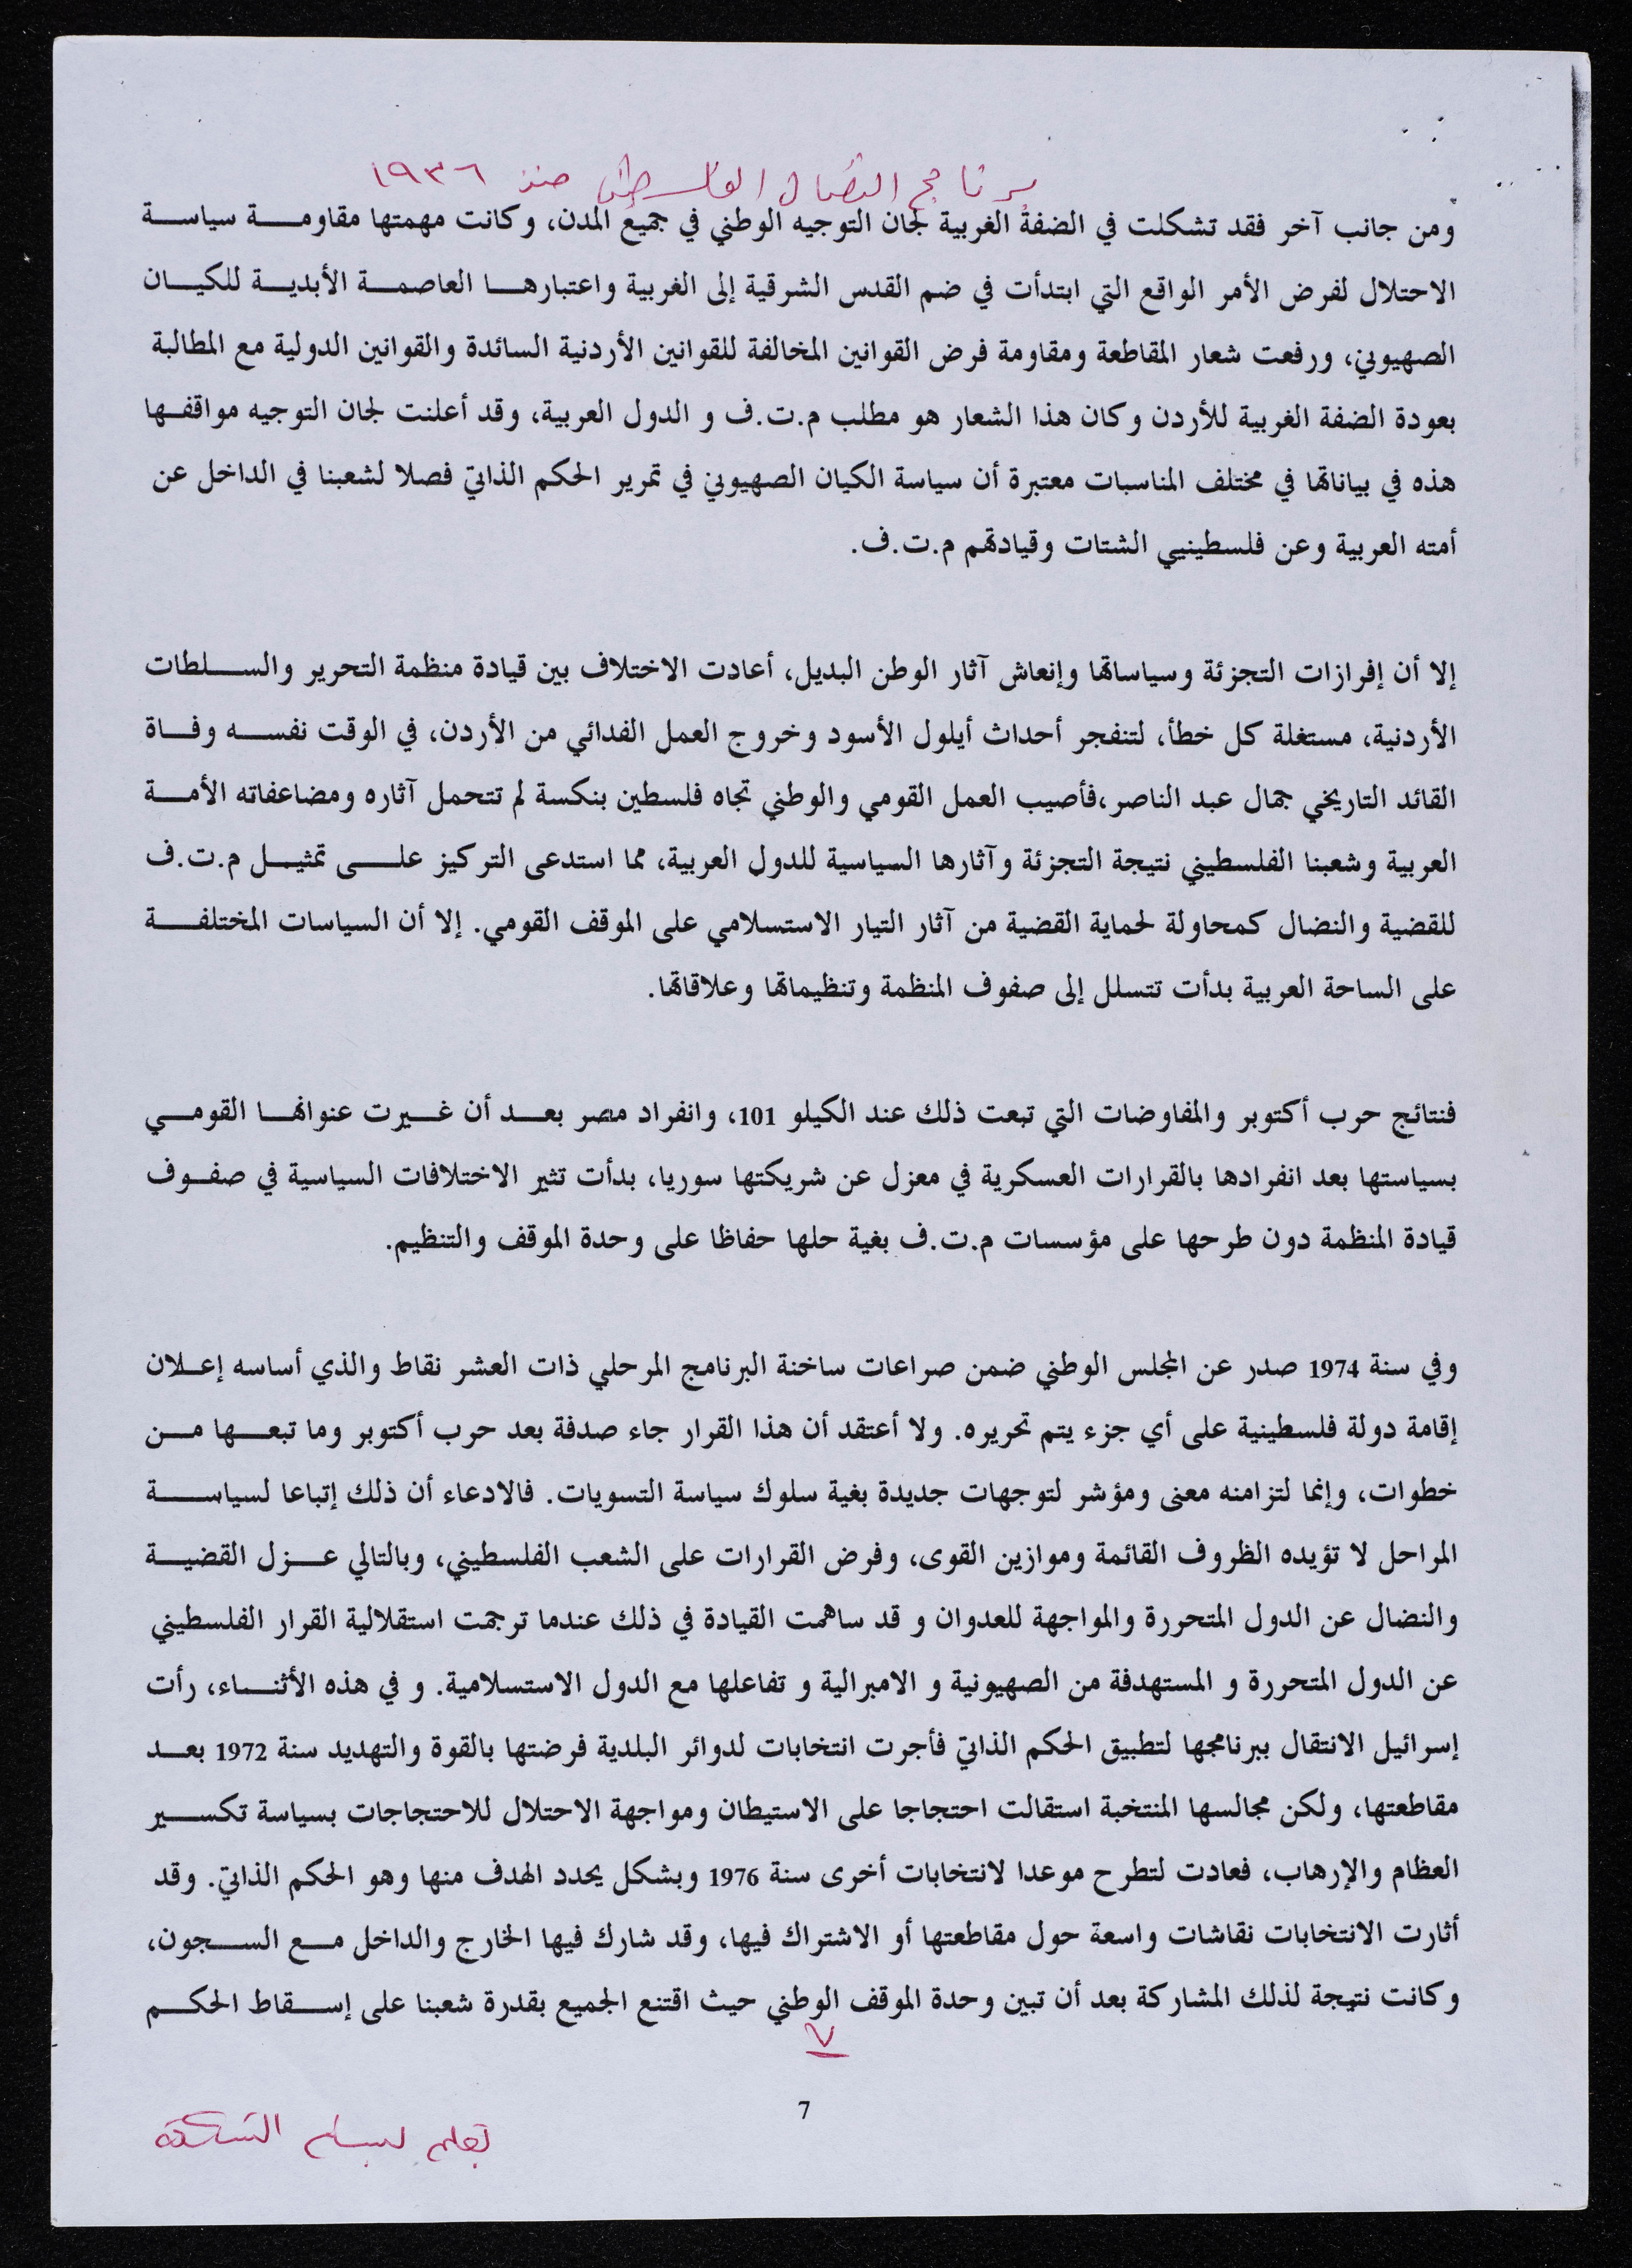 برنامج النضال الفلسطيني منذ ١٩٣٦
ومن جانب آخر فقد تشكلت في الضفة الغربية لجان التوجيه الوطني في جميع المدن، وكانت مهمتها مقاومة سياسة
الاحتلال لفرض الأمر الواقع التي ابتدأت في ضم القدس الشرقية إلى الغربية واعتبارها العاصمة الأبدية للكيان
الصهيوني، ورفعت شعار المقاطعة ومقاومة فرض القوانين المخالفة للقوانين الأردنية السائدة والقوانين الدولية مع المطالبة
بعودة الضفة الغربية للأردن وكان هذا الشعار هو مطلب م.ت.ف و الدول العربية، وقد أعلنت لجان التوجيه مواقفها
هذه في بياناتها في مختلف المناسبات معتبرة أن سياسة الكيان الصهيوني في تمرير الحكم الذاتي فصلا لشعبنا في الداخل عن
أمته العربية وعن فلسطينيي الشتات وقيادتهم م.ت.ف.
إلا أن إفرازات التجزئة وسياساتها وإنعاش آثار الوطن البديل، أعادت الاختلاف بين قيادة منظمة التحرير والسلطات
الأردنية، مستغلة كل خطأ، لتنفجر أحداث أيلول الأسود وخروج العمل الفدائي من الأردن، في الوقت نفسه وفاة
القائد التاريخي جمال عبد الناصر،فأصيب العمل القومي والوطني تجاه فلسطين بنكسة لم تتحمل آثاره ومضاعفاته الأمة
العربية وشعبنا الفلسطيني نتيجة التجزئة وآثارها السياسية للدول العربية، مما استدعى التركيز على تمثيل م.ت.ف
للقضية والنضال كمحاولة لحماية القضية من آثار التيار الاستسلامي على الموقف القومي. إلا أن السياسات المختلفة
على الساحة العربية بدأت تتسلل إلى صفوف المنظمة وتنظيماتها وعلاقاتها.
فنتائج حرب أكتوبر والمفاوضات التي تبعت ذلك عند الكيلو 101، وانفراد مصر بعد أن غيرت عنوانها القومي
بسياستها بعد انفرادها بالقرارات العسكرية في معزل عن شريكتها سوريا، بدأت تثير الاختلافات السياسية في صفوف
قيادة المنظمة دون طرحها على مؤسسات م.ت.ف بغية حلها حفاظا على وحدة الموقف والتنظيم.
وفي سنة 1974 صدر عن المجلس الوطني ضمن صراعات ساخنة البرنامج المرحلي ذات العشر نقاط والذي أساسه إعلان
إقامة دولة فلسطينية على أي جزء يتم تحريره. ولا أعتقد أن هذا القرار جاء صدفة بعد حرب أكتوبر وما تبعها من
خطوات، وإنما لتزامنه معنى ومؤشر لتوجهات جديدة بغية سلوك سياسة التسويات. فالادعاء أن ذلك إتباعا لسياسة
المراحل لا تؤيده الظروف القائمة وموازين القوى، وفرض القرارات على الشعب الفلسطيني، وبالتالي عزل القضية
والنضال عن الدول المتحررة والمواجهة للعدوان و قد ساهمت القيادة في ذلك عندما ترجمت استقلالية القرار الفلسطيني
عن الدول المتحررة و المستهدفة من الصهيونية و الامبرالية و تفاعلها مع الدول الاستسلامية. و في هذه الأثناء، رأت
إسرائيل الانتقال ببرنامجها لتطبيق الحكم الذاتي فأجرت انتخابات لدوائر البلدية فرضتها بالقوة والتهديد سنة 1972 بعد
مقاطعتها، ولكن مجالسها المنتخبة استقالت احتجاجا على الاستيطان ومواجهة الاحتلال للاحتجاجات بسياسة تكسير
العظام والإرهاب، فعادت لتطرح موعدا لانتخابات أخرى سنة 1976 وبشكل يحدد الهدف منها وهو الحكم الذاتي. وقد
أثارت الانتخابات نقاشات واسعة حول مقاطعتها أو الاشتراك فيها، وقد شارك فيها الخارج والداخل مع السجون،
وكانت نتيجة لذلك المشاركة بعد أن تبين وحدة الموقف الوطني حيث اقتنع الجميع بقدرة شعبنا على إسقاط الحكم
٧
7
بقلم بسام الشكعة